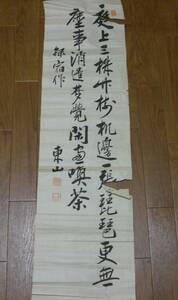 庭上三株竹樹机邊一張琵琶更無
塵事消遣夢覺閑喫茶
録宿作
東山